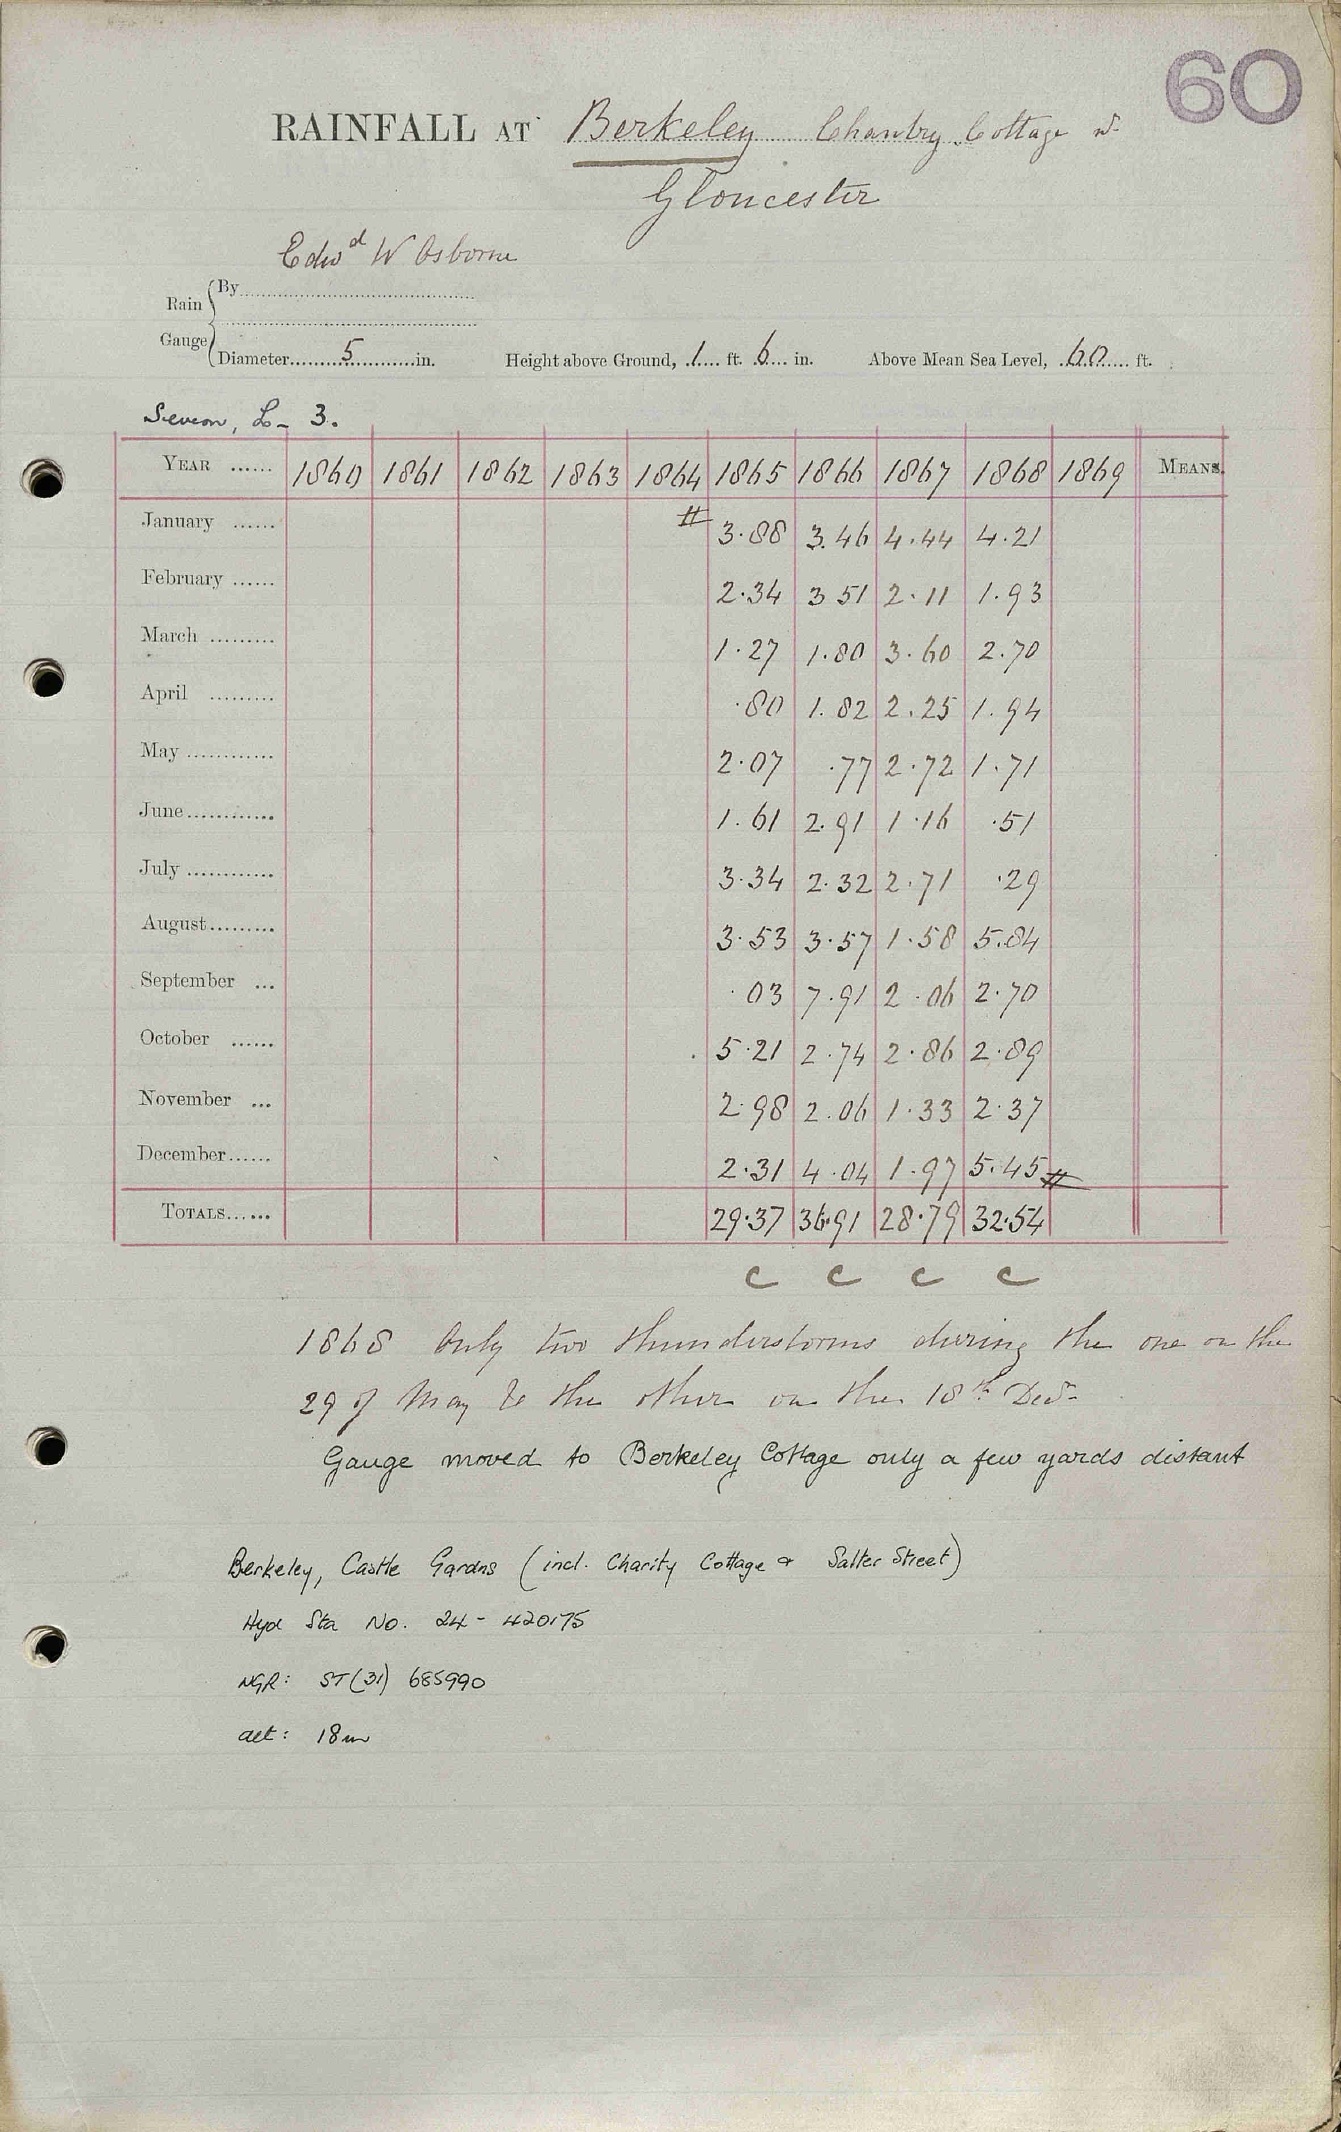 60
RAINFALL AT Berkeley Chantry Cottage
Gloucester
Edwd W Osborne
Rain Gauge
By
Diameter 5 in. Height above Ground, 1 ft. 6 in. Above Mean Sea Level, 60 ft.
Severn, L - 3.
YEAR 1860 1861 1862 1863 1864 1865 1866 1867 1868 1869 MEANS.
January # 3.88 3.46 4.44 4.21
February 2.34 3 51 2.11 1.93
March 1.27 1.80 3.60 2.70
April .80 1.82 2.25 1.94
May 2.07 .77 2.72 1.71
June 1.61 2.91 1.16 .51
July 3.34 2.32 2.71 .29
August 3.53 3.57 1.58 5.84
September .03 7.91 2.06 2.70
October 5.21 2.74 2.86 2.89
November 2.98 2.06 1.33 2.37
December 2.31 4.04 1.97 5.45 #
TOTALS 29.37 36.91 28.79 32.54
C C C C
1868 Only two thunderstorms during the one on the
29 of May & the other on the 18th Decr
Gauge moved to Berkeley Cottage only a few yards distant
Berkeley, Castle Gardns (incl. Charity Cottage & Salter Street)
Hyd Sta No. 24 - 420175
NGR: ST(31) 685990
alt: 18m